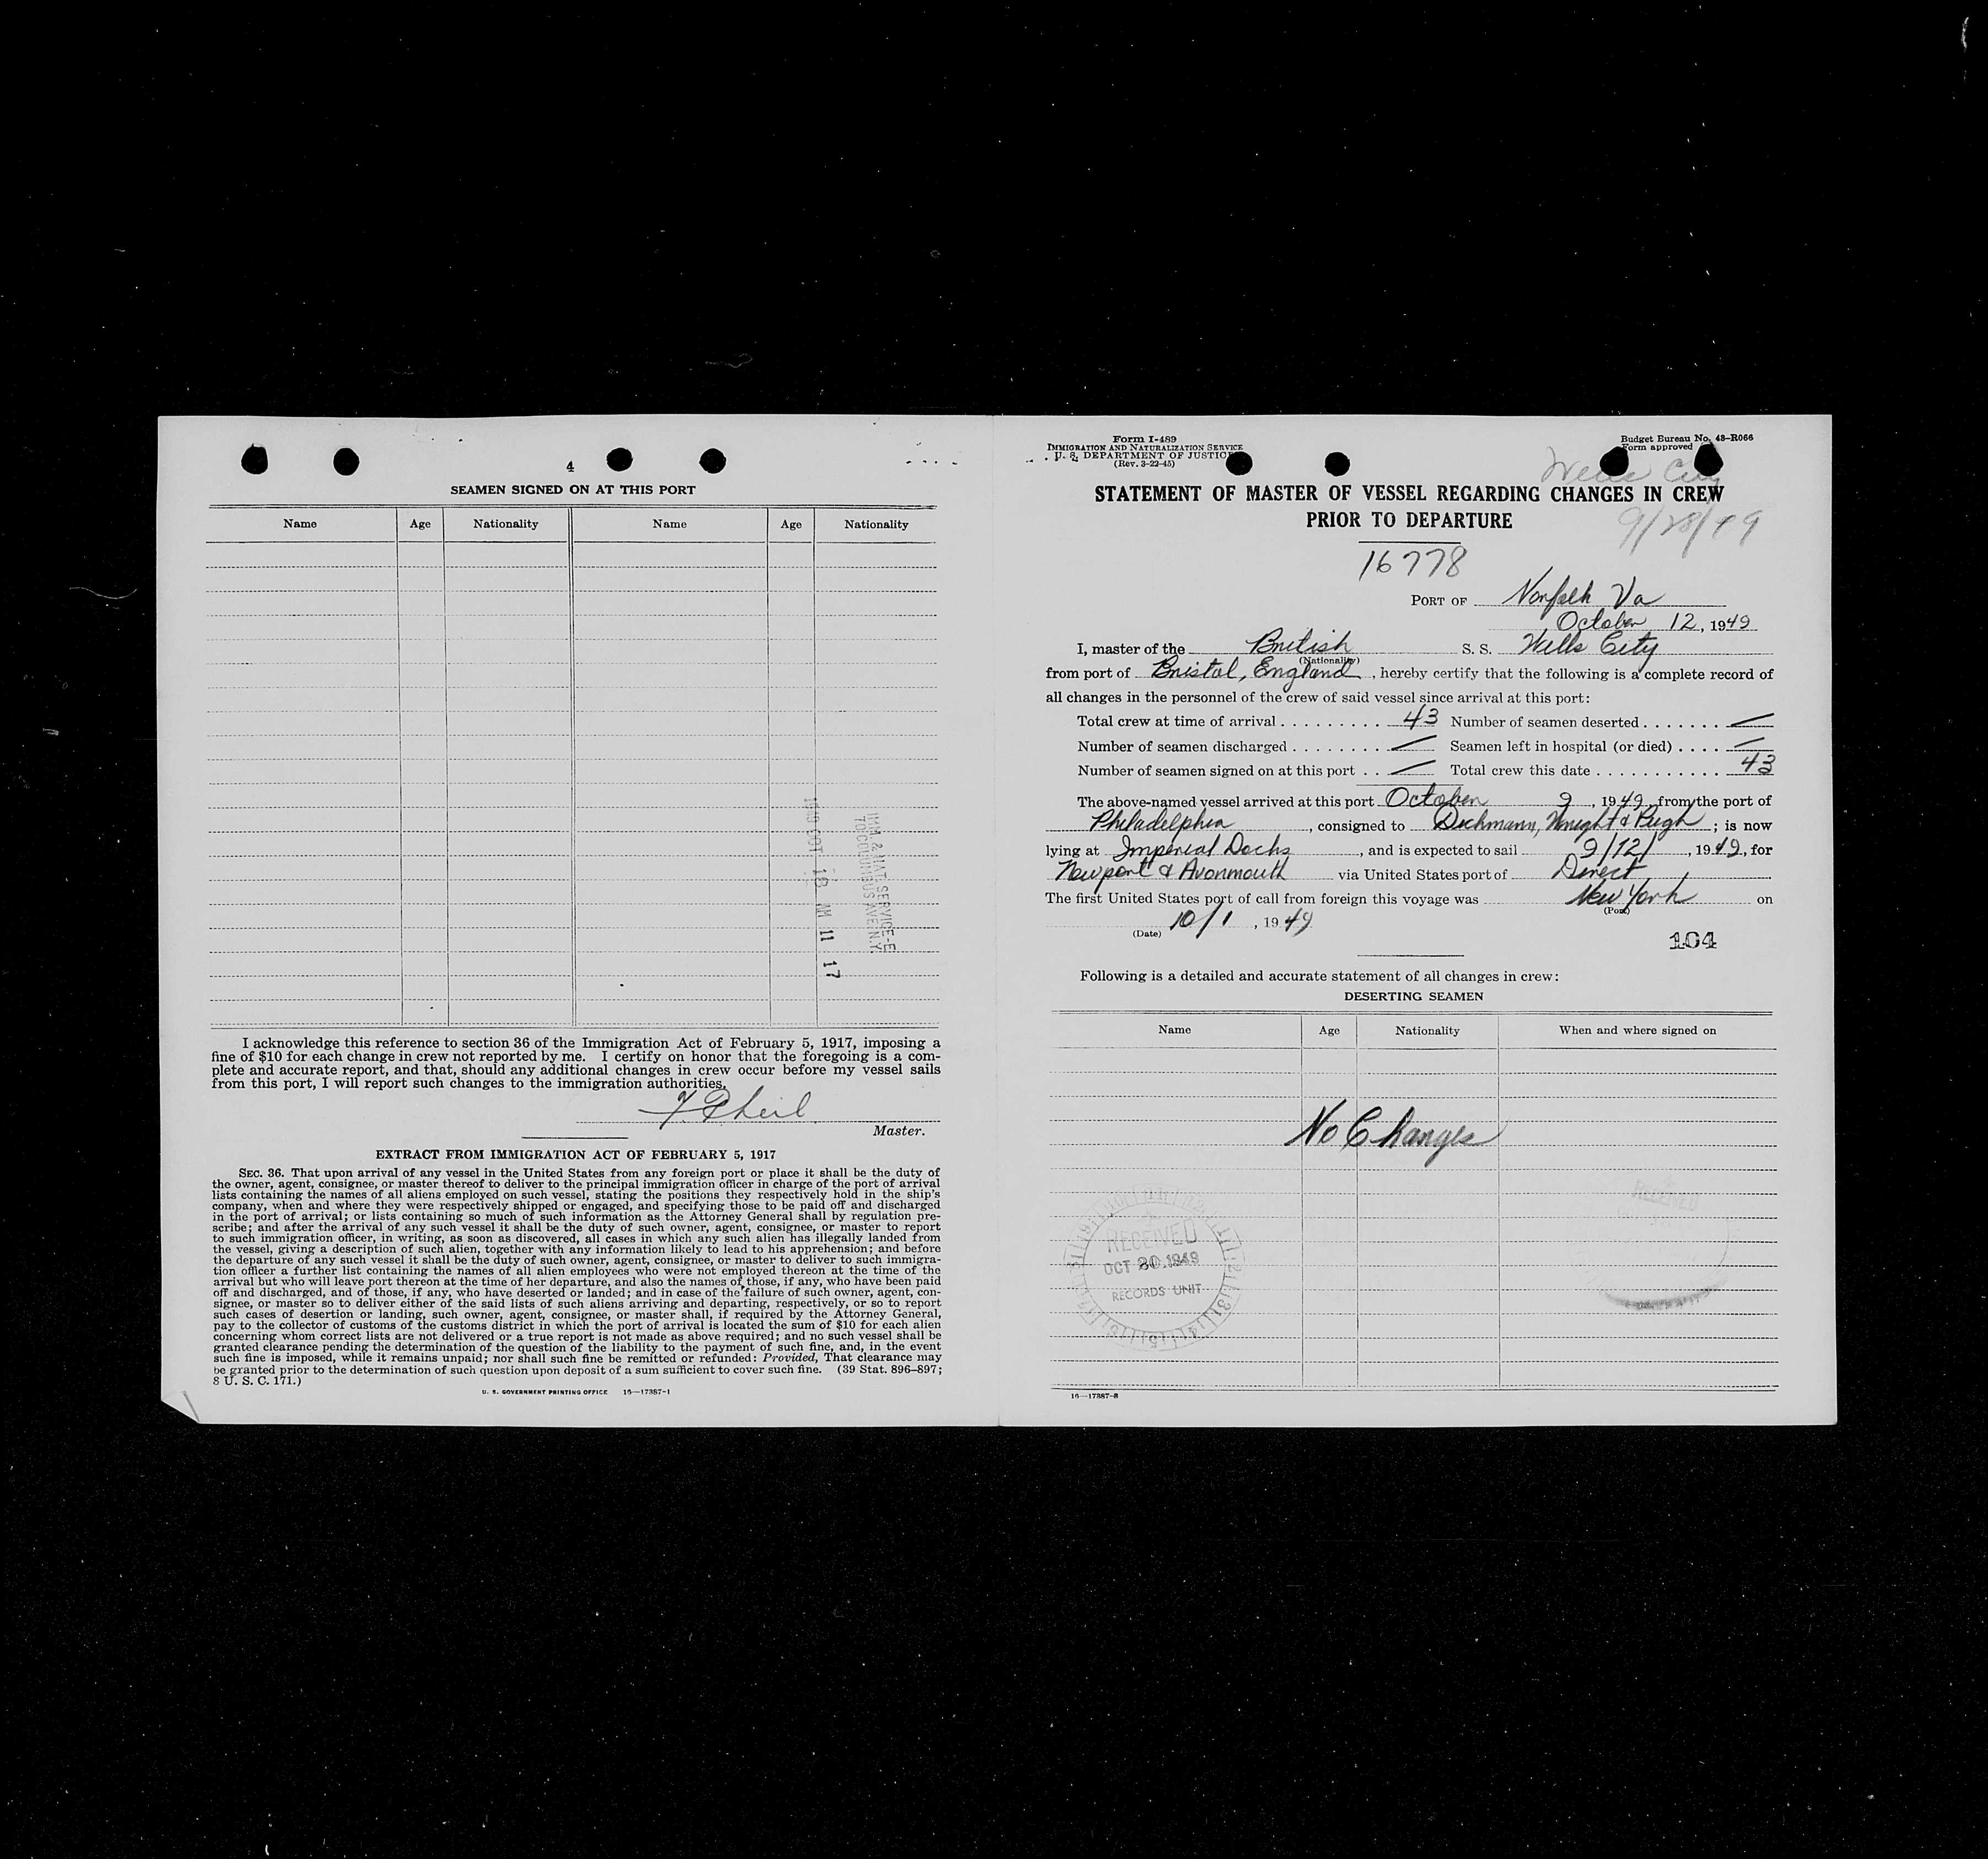 4
SEAMEN SIGNED ON AT THIS PORT
Name Age Nationality Name Age Nationality
IMM. & NAT. SERVICE-E
70 COLUMBUS AVE. N.Y.
1949 OCT 18 AM 11 17
I acknowledge this reference to section 36 of the Immigration Act of February 5, 1917, imposing a
fine of $10 for each change in crew not reported by me. I certify on honor that the foregoing is a com-
plete and accurate report, and that, should any additional changes in crew occur before my vessel sails
from this port, I will report such changes to the immigration authorities.
Master.
EXTRACT FROM IMMIGRATION ACT OF FEBRUARY 5, 1917
SEC. 36. That upon arrival of any vessel in the United States from any foreign port or place it shall be the duty of
the owner, agent, consignee, or master thereof to deliver to the principal immigration officer in charge of the port of arrival
lists containing the names of all aliens employed on such vessel, stating the positions they respectively hold in the ship's
company, when and where they were respectively shipped or engaged, and specifying those to be paid off and discharged
in the port of arrival; or lists containing so much of such information as the Attorney General shall by regulation pre-
scribe; and after the arrival of any such vessel it shall be the duty of such owner, agent, consignee, or master to report
to such immigration officer, in writing, as soon as discovered, all cases in which any such alien has illegally landed from
the vessel, giving a description of such alien, together with any information likely to lead to his apprehension; and before
the departure of any such vessel it shall be the duty of such owner, agent, consignee, or master to deliver to such immigra-
tion officer a further list containing the names of all alien employees who were not employed thereon at the time of the
arrival but who will leave port thereon at the time of her departure, and also the names of those, if any, who have been paid
off and discharged, and of those, if any, who have deserted or landed; and in case of the failure of such owner, agent, con-
signee, or master so to deliver either of the said lists of such aliens arriving and departing, respectively, or so to report
such cases of desertion or landing, such owner, agent, consignee, or master shall, if required by the Attorney General,
pay to the collector of customs of the customs district in which the port of arrival is located the sum of $10 for each alien
concerning whom correct lists are not delivered or a true report is not made as above required; and no such vessel shall be
granted clearance pending the determination of the question of the liability to the payment of such fine, and, in the event
such fine is imposed, while it remains unpaid; nor shall such fine be remitted or refunded: Provided, That clearance may
be granted prior to the determination of such question upon deposit of a sum sufficient to cover such fine. (39 Stat. 896-897;
8 U. S. C. 171.)
U. S. GOVERNMENT PRINTING OFFICE 16—17387-1
Form I-489
IMMIGRATION AND NATURALIZATION SERVICE
U. S. DEPARTMENT OF JUSTICE
(Rev. 3-22-45)
Budget Bureau No. 43-R066
Form approved
Wells City
9/28/49
STATEMENT OF MASTER OF VESSEL REGARDING CHANGES IN CREW
PRIOR TO DEPARTURE
16778
PORT OF Norfolk Va
October 12, 1949
I, master of the British S. S. Wells City
(Nationality)
from port of Bristol, England, hereby certify that the following is a complete record of
all changes in the personnel of the crew of said vessel since arrival at this port:
Total crew at time of arrival . . . . . . . . . . 43 Number of seamen deserted . . . . . . . —
Number of seamen discharged . . . . . . . . — Seamen left in hospital (or died) . . . . —
Number of seamen signed on at this port . . — Total crew this date . . . . . . . . . . . 43
The above-named vessel arrived at this port October 9, 1949, from the port of
Philadelphia, consigned to Dichmann, Wright & Pugh; is now
lying at Imperial Docks, and is expected to sail 9/12/, 1949, for
Newport & Avonmouth via United States port of Direct
The first United States port of call from foreign this voyage was New York on
(Port)
10/1, 1949
(Date)
104
Following is a detailed and accurate statement of all changes in crew:
DESERTING SEAMEN
Name Age Nationality When and where signed on
No Changes
RECEIVED
RECEIVED
OCT 20 1949
RECORDS UNIT
16—17387-3